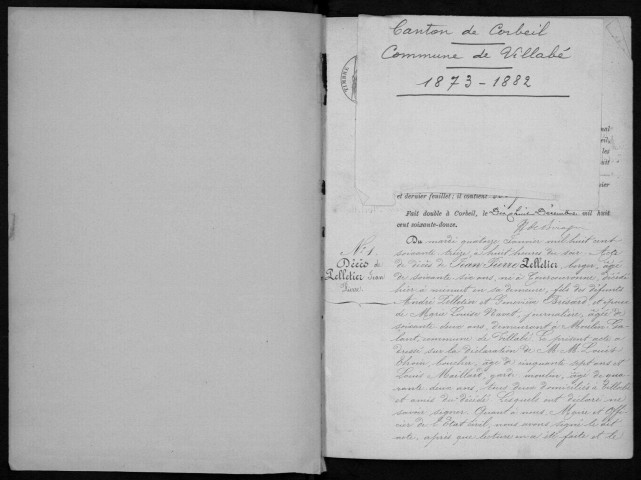 Canton de Corbeil
Commune de Villabé
1873-1882
et dernier feuillet; il contient
Fait double à Corbeil, le Décembre mil huit
cent soixante-douze.
Du mardi quatorze Janvier mil huit cent
soixante treize, à huit heures du soir Acte
de décès de Jean Pierre Pelletier berger, âgé
de soixante six ans, né à décédé
hier à minuit en sa demeure, fils des défunts
André Pelletier et Geneviève et époux
de Marie Louise journalière, âgée de
soixante deux ans, demeurant à Moulin Ga-
lant, commune de Villabé. Le présent acte a
dressé sur la déclaration de M.M. Louis
âgé de cinquante sept ans et
Louis Maillard, garde moulin, âgé de qua-
rante deux ans, tous deux domiciliés à Villabé
et amis du décédé Lesquels ont déclaré ne
savoir signer. Quant à nous, Maire et Offi-
cier de l'état civil, nous avons signé le dit
acte, après que lecture en a été faite et le
N° 1
Décès de
Pelletier Jean
Pierre